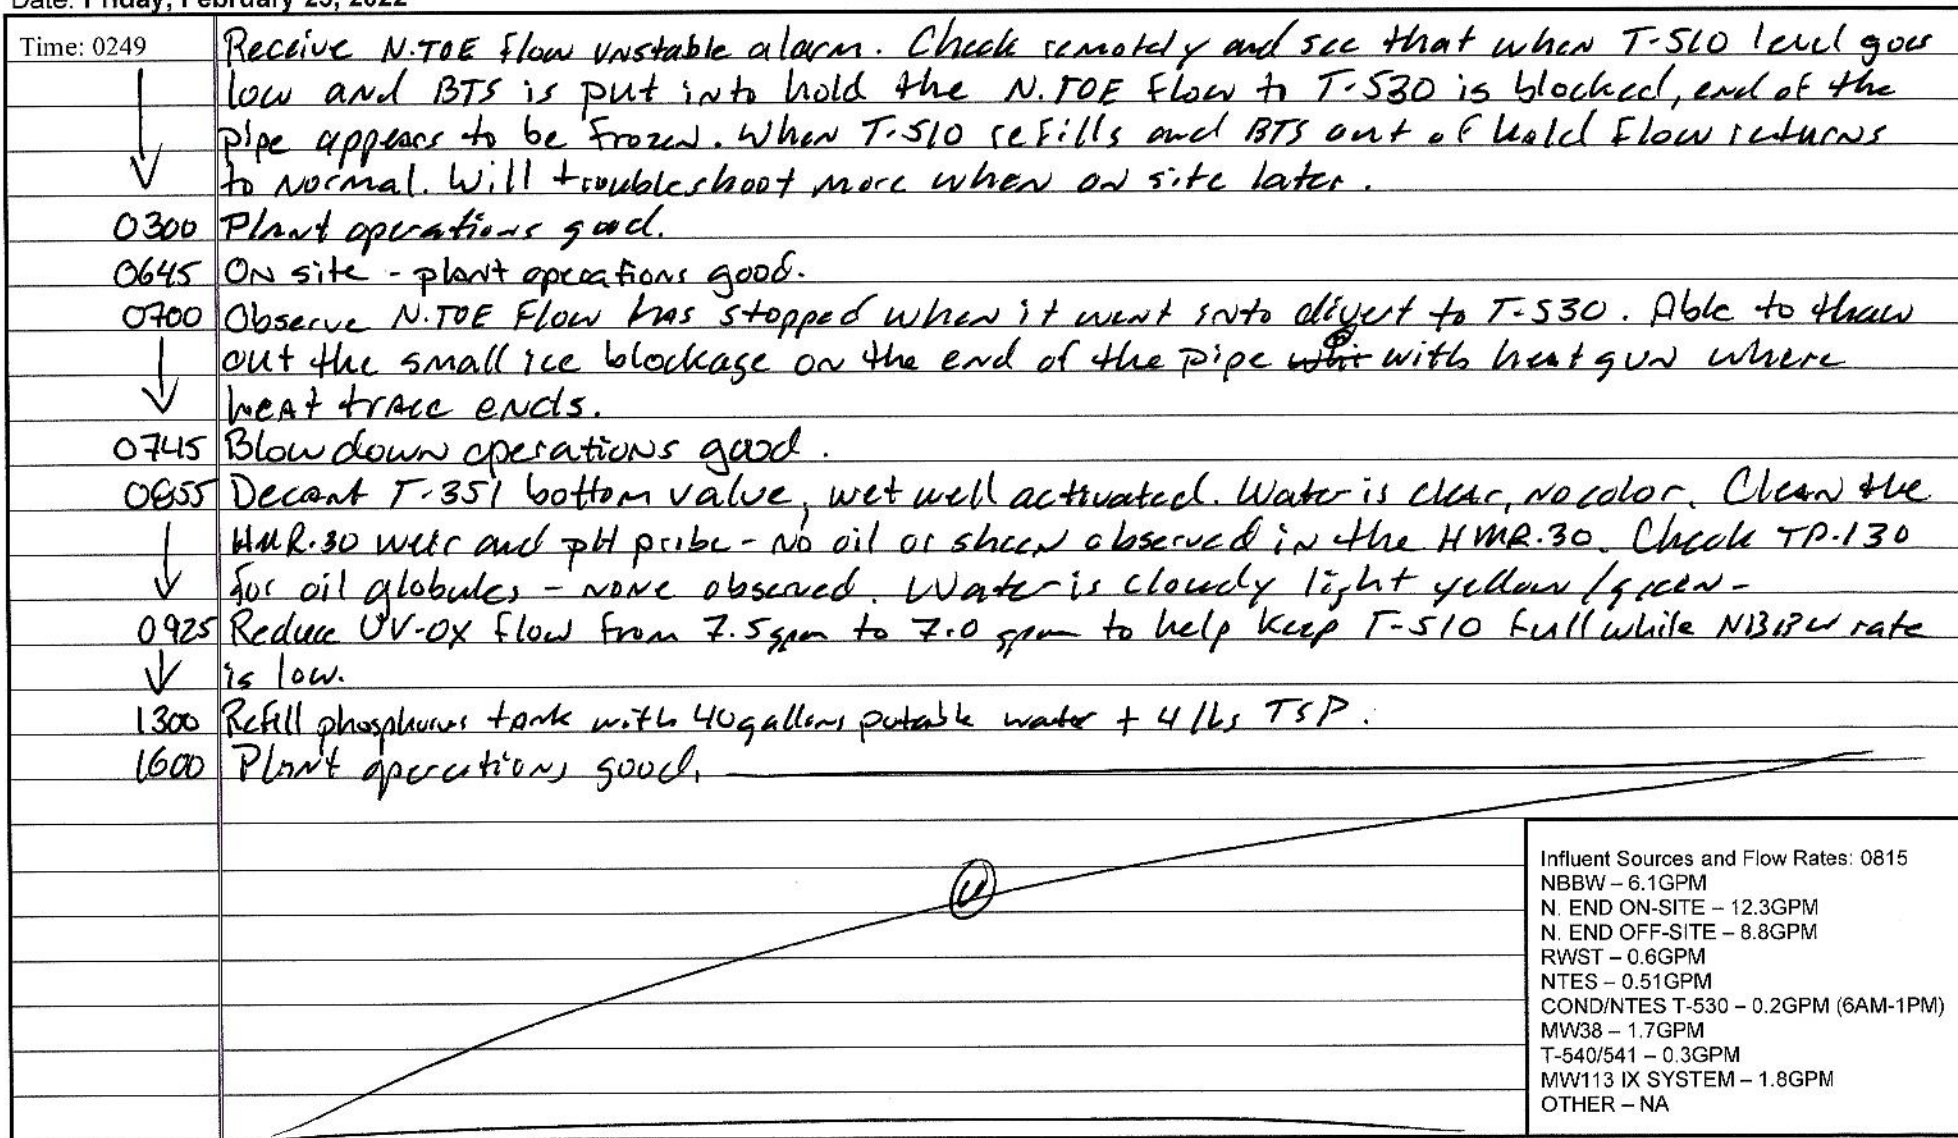 Date: Friday, February 25, 2022
Time: 0249 Receive N.TOE flow unstable alarm. Check remotely and see that when T-510 level goes
low and BTS is put into hold the N.TOE flow to T-530 is blocked, end of the
pipe appears to be frozen. When T-510 refills and BTS out of hold flow returns
to normal. Will troubleshoot more when on site later.
0300 Plant operations good.
0645 On site - plant operations good.
0700 Observe N.TOE Flow has stopped when it went into divert to T-530. Able to thaw
out the small ice blockage on the end of the pipe with heat gun where
heat trace ends.
0745 Blowdown operations good.
0855 Decant T-351 bottom valve, wet well activated. Water is clear, no color. Clean the
HMR.30 weir and pH probe - No oil or sheen observed in the HMR.30. Check TP-130
for oil globules - none observed. Water is cloudy light yellow/green-
0925 Reduce UV-OX flow from 7.5 gpm to 7.0 gpm to help keep T-510 full while NBBW rate
is low.
1300 Refill phosphorus tank with 40 gallons potable water + 4 lbs TSP.
1600 Plant operations good.
Influent Sources and Flow Rates: 0815
NBBW – 6.1GPM
N. END ON-SITE – 12.3GPM
N. END OFF-SITE – 8.8GPM
RWST – 0.6GPM
NTES – 0.51GPM
COND/NTES T-530 – 0.2GPM (6AM-1PM)
MW38 – 1.7GPM
T-540/541 – 0.3GPM
MW113 IX SYSTEM – 1.8GPM
OTHER – NA